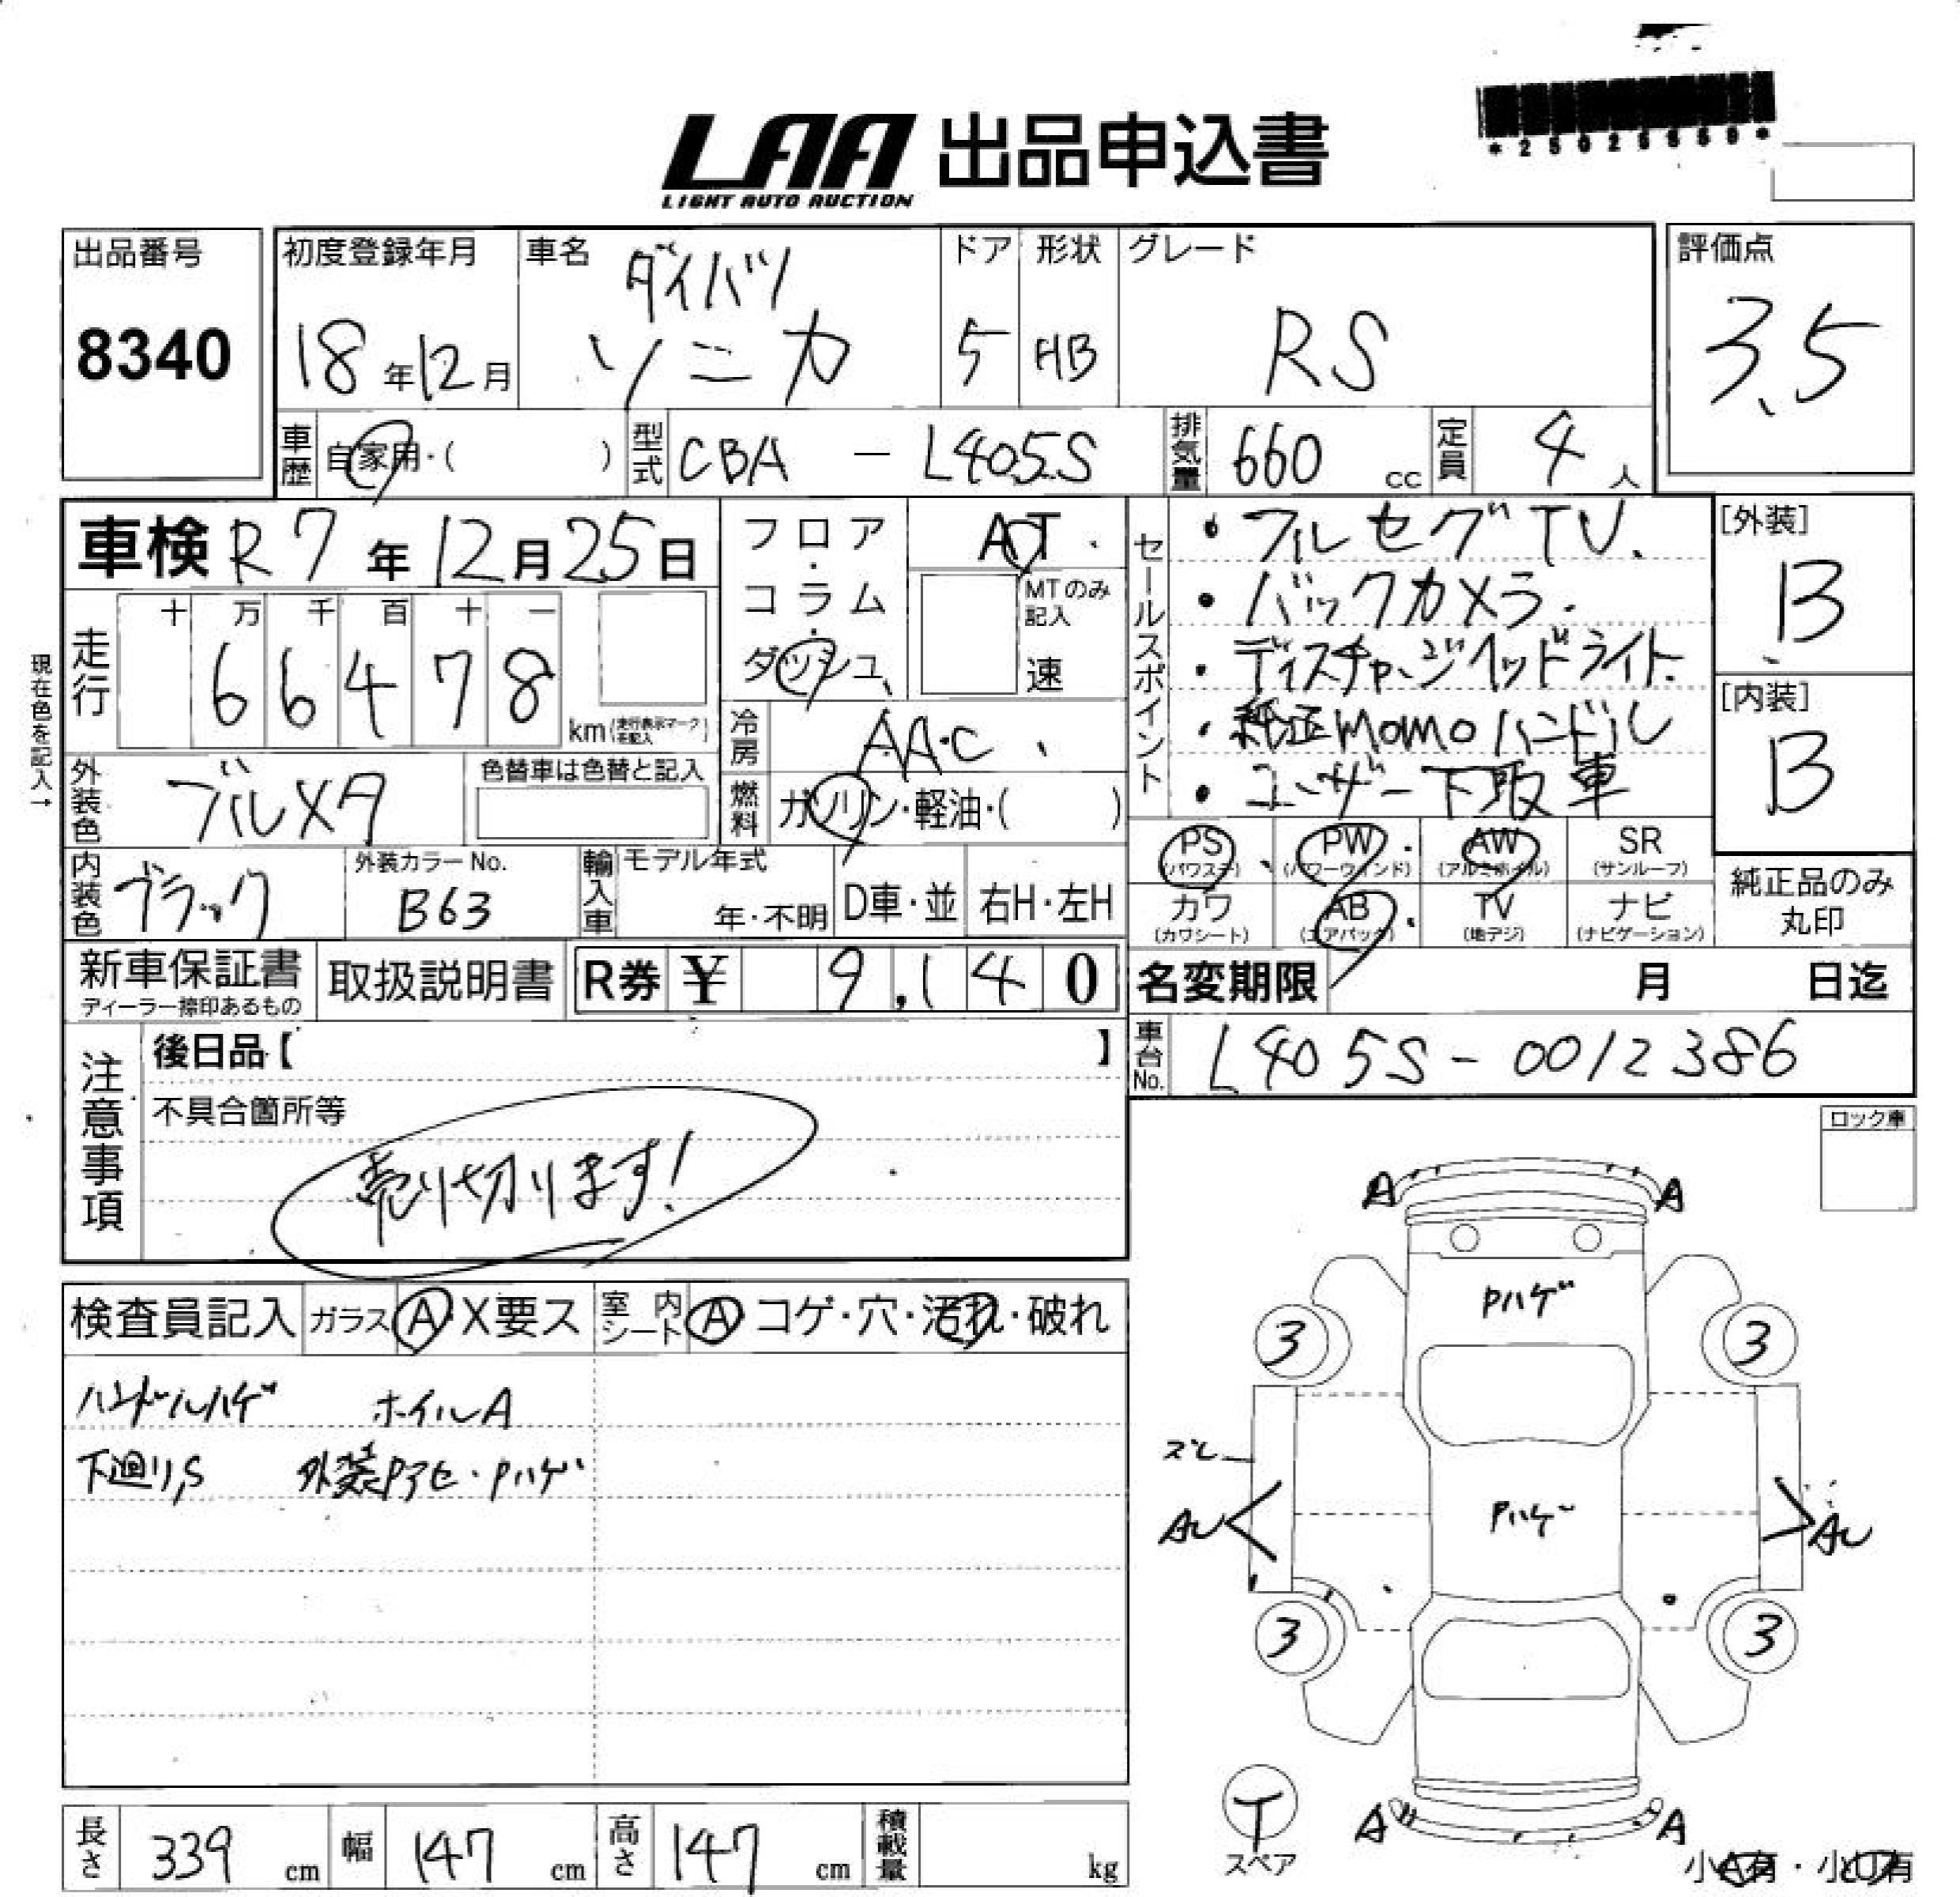 LAA 出品申込書
LIGHT AUTO AUCTION
出品番号
8340
初度登録年月
18年12月
車名
ダイハツ
ソニカ
ドア
5
形状
HB
グレード
RS
評価点
3.5
車歴
自家用・( )
型式
CBA - L405S
排気量
660 cc
定員
4人
車検 R7年12月25日
フロア・コラム・ダッシュ
AT
MTのみ記入
速
セールスポイント
・フルセグTV.
・バックカメラ.
・ディスチャージヘッドライト.
・純正momoハンドル
・ユーザー下取車
[外装]
B
[内装]
B
現在色を記入→
走行
十 万 千 百 十 一
6 6 4 7 8
km(走行表示マークを記入)
冷房
AAC
外装色
ブルメタ
色替車は色替と記入
燃料
ガソリン・軽油・( )
PS (パワステ)
PW (パワーウィンド)
AW (アルミホイル)
SR (サンルーフ)
カワ (カワシート)
AB (エアバック)
TV (地デジ)
ナビ (ナビゲーション)
純正品のみ
丸印
内装色
ブラック
外装カラーNo.
B63
輸入車
モデル年式
年・不明
D車・並
右H・左H
新車保証書
ディーラー捺印あるもの
取扱説明書
R券 ¥ 9,140
名変期限 月 日迄
車台No.
L405S-0012386
注意事項
後日品【 】
不具合箇所等
売り切ります!
ロック車
検査員記入
ガラス A X要ス
室内シート A コゲ・穴・汚れ・破れ
ハンドルハゲ ホイルA
下廻りS 外装Pアセ・Pハゲ
A A
Pハゲ
3 3
ズレ
Pハゲ
AU AU
3 3
A A
T
スペア
小A有・小U有
長さ 339 cm
幅 147 cm
高さ 147 cm
積載量 kg